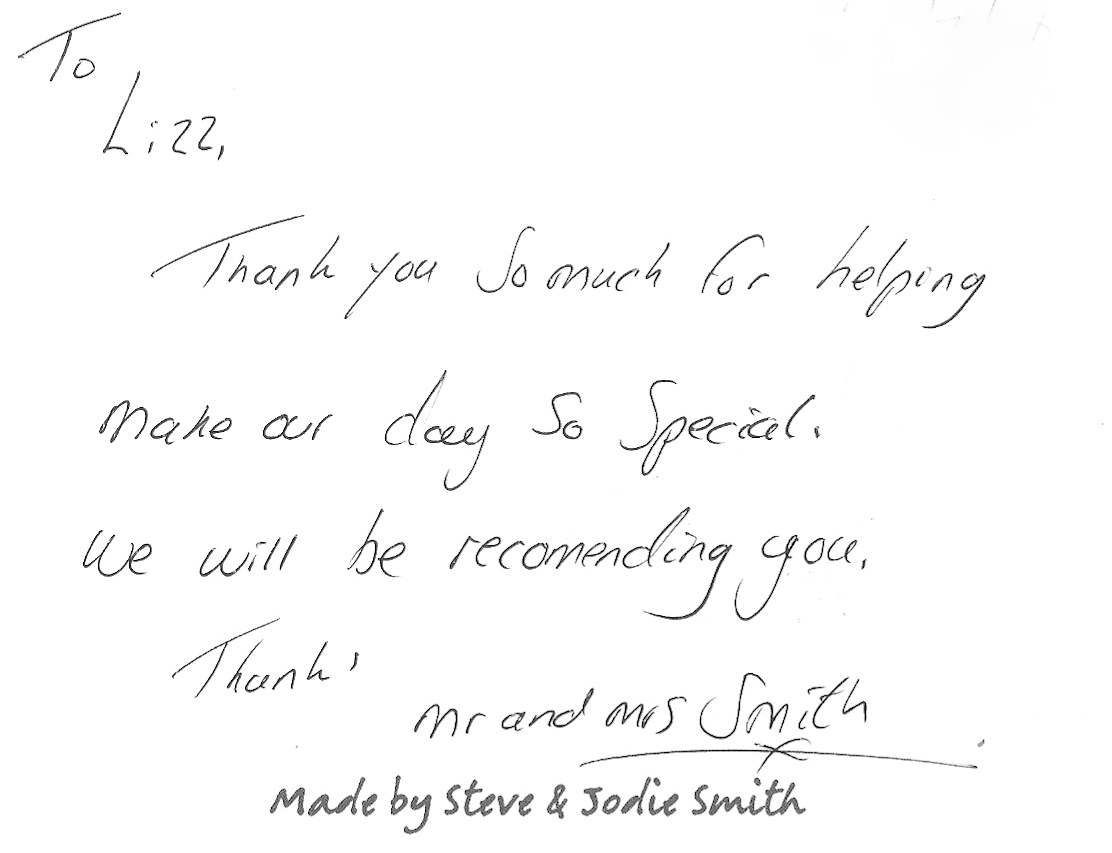 To
Lizz,
Thank you So much for helping
make our day So Special.
we will be recomending you.
Thank'
mr and mrs Smith
Made by Steve & Jodie Smith